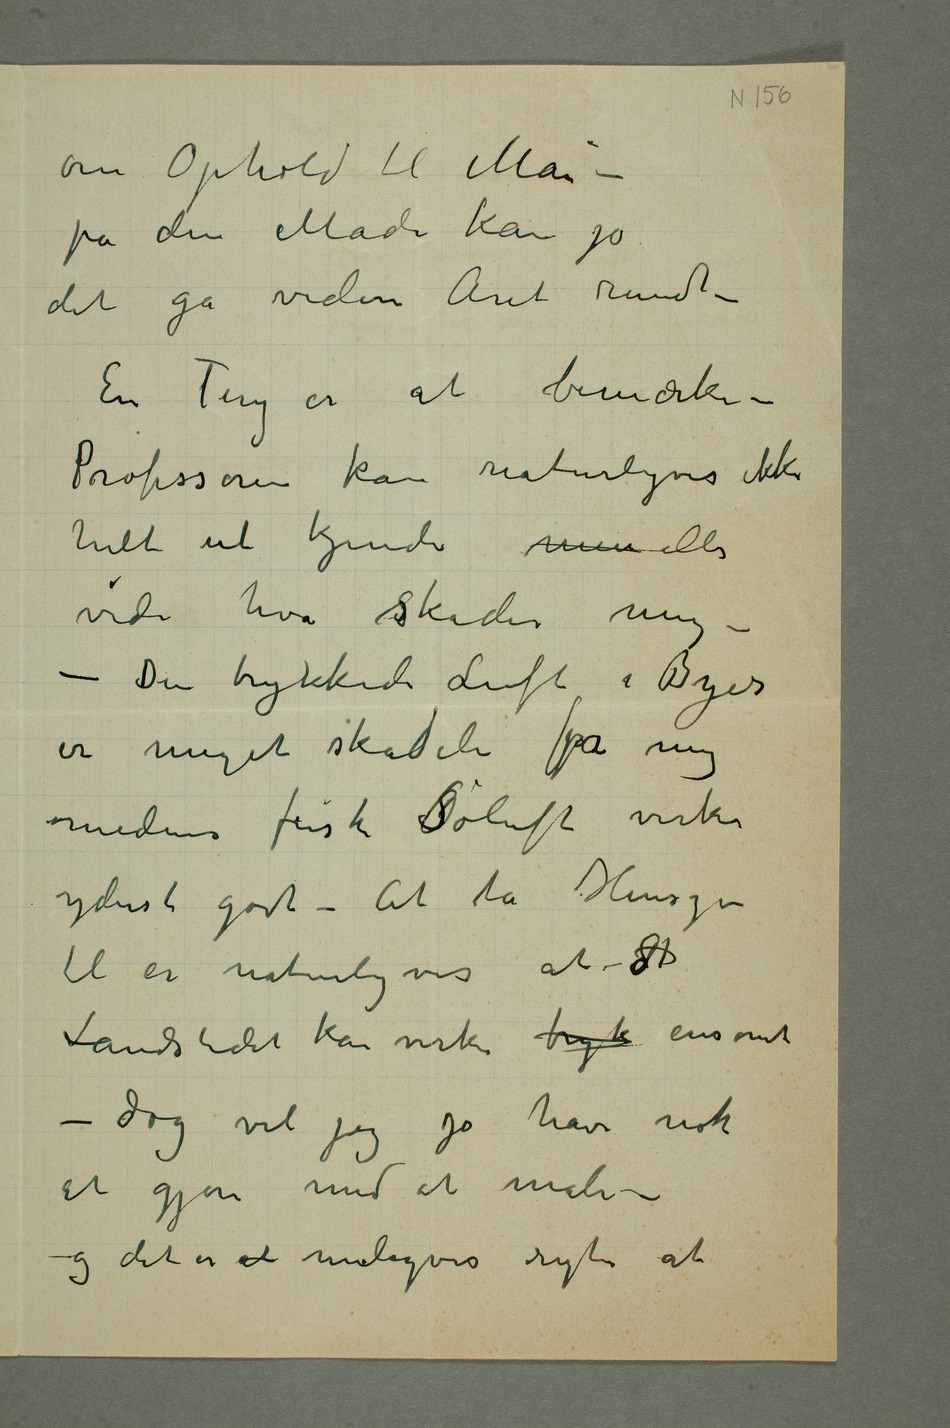 N 156
om Ophold til Mai –
på den Måde kan jo
det gå videre Året rundt –
En Ting er at bemærke –
Professoren kan naturligvis ikke
helt ut kjende men eller
vide hva skader mig –
– Den trykkede Luft i Byer
er meget skadelig for mig
medens frisk Søluft virker
yderst godt – At ta Hensyn
til er naturligvis at St
Landstedet kan virke tryk ensomt
– dog vil jeg jo have nok
at gjøre med at male –
og det er at muligvis rygte at